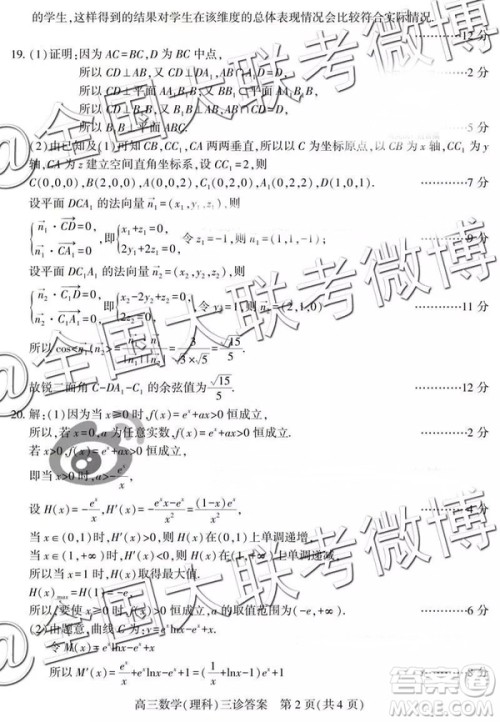 的学生,这样得到的结果对学生在该维度的总体表现情况会比较符合实际情况.
12 分
19. (1)证明:因为 AC=BC,D 为 BC 中点,
所以 CD⊥AB, 又 CD⊥DA₁,AB∩DA₁=D,
所以 CD⊥平面 AA₁B₁B, ⋯⋯⋯⋯2 分
所以 CD⊥B₁B,
所以 B₁B⊥平面 ABC. 5 分
(2)由已知及(1)可知 CB,CC₁,CA 两两垂直,所以以 C 为坐标原点,以 CB 为 x 轴,CC₁为 y
轴,CA 为 z 建立空间直角坐标系,设 CC₁=2,则
C(0,0,0),B(2,0,0),A(0,0,2),C₁(0,2,0),A₁(0,2,2),D(1,0,1). ⋯⋯⋯⋯7 分
设平面 DCA₁ 的法向量 n₁=(x₁,y₁,z₁),则
{n₁·CD=0, n₁·CA₁=0, 即{x₁+z₁=0, 2y₁+2z₁=0, 令 z₁=-1, 则 n₁=(1,1,-1); 9 分
设平面 DC₁A₁ 的法向量 n₂=(x₂,y₂,z₂),则
{n₂·C₁D=0, n₂·C₁A₁=0, 即{x₂-2y₂+z₂=0, 2z₂=0, 令 则 n₂=(2,1,0) 11 分
所以 cos<n₁,n₂>= n₁·n₂/|n₁||n₂| = 3/√3×√5 = √15/5.
故锐二面角 C-DA₁-C₁ 的余弦值为 √15/5. ⋯⋯⋯⋯12 分
20. 解:(1)因为当 x≥0 时,f(x)=eˣ+ax>0 恒成立,
所以,若 x=0,a 为任意实数,f(x)=eˣ+ax>0 恒成立. 2 分
若 x>0,f(x)=eˣ+ax>0 恒成立,
即当 x>0 时,a>-eˣ/x,
设 H(x)=-eˣ/x,H′(x)=-(eˣx-eˣ)/x²=(1-x)eˣ/x², ⋯⋯⋯⋯4 分
当 x∈(0,1)时,H′(x)>0,则 H(x)在(0,1)上单调递增,
当 x∈(1,+∞)时,H′(x)<0,则 H(x)在(1,+∞)上单调递减
所以当 x=1 时,H(x)取得最大值.
H(x)max=H(1)=-e,
所以,要使 x≥0 时,f(x)>0 恒成立,a 的取值范围为(-e,+∞). ⋯⋯⋯⋯6 分
(2)由题意,曲线 C 为:y=eˣlnx-eˣ+x.
令 M(x)=eˣlnx-eˣ+x,
所以 M′(x)=eˣ/x+eˣlnx-eˣ 8 分
高三数学(理科)三诊答案 第 2 页(共 4 页)
@全国大联考微博
@全国大联考微博
@全国大联考微博